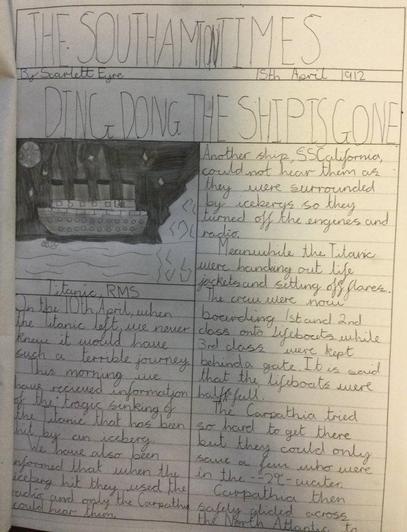 THE SOUTHAMTON TIMES
By Scarlett Eyre 15th April 1912
DING DONG THE SHIP IS GONE
Titanic, RMS
On the 10th April, when
the titanic left, we never
knew it would have
such a terrible journey.
This morning we
have recieved information
of the tragic sinking of
the titanic that has been
hit by an iceberg.
We have also been
informed that when the
iceberg hit they used the
radio and only the Carpathia
could hear them.
Another ship, SS California,
could not hear them as
they were surrounded
by icebergs so they
turned off the engines and
radio.
Meanwhile the Titanic
were handing out life
jackets and setting off flares.
The crew were now
boarding 1st and 2nd
class onto lifeboats while
3rd class were kept
behind a gate. It is said
that the lifeboats were
half full.
The Carpathia tried
so hard to get there
but they could only
save a few who were
in the -2°c water.
Carpathia then
safely glided across
the North Atlantic to